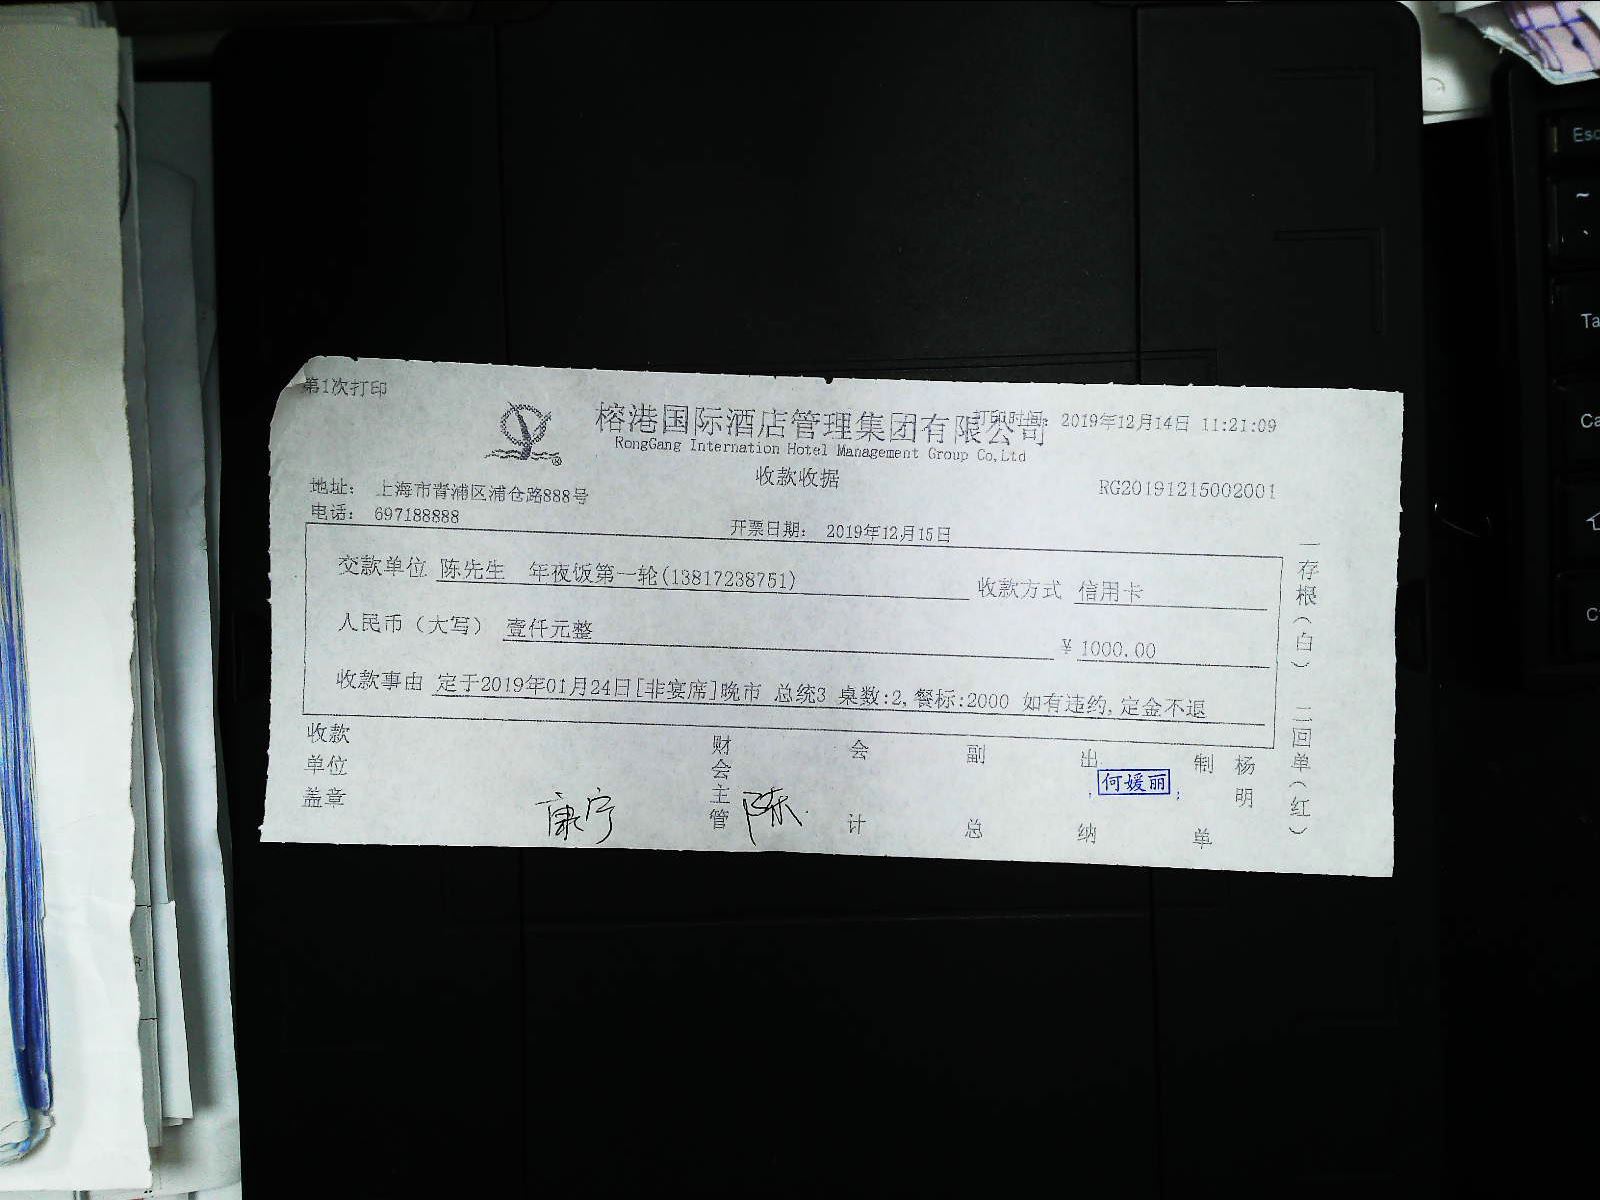 第1次打印
榕港国际酒店管理集团有限公司
打印时间: 2019年12月14日 11:21:09
RongGang Internation Hotel Management Group Co,Ltd
收款收据
地址: 上海市青浦区浦仓路888号
RG20191215002001
电话: 697188888
开票日期: 2019年12月15日
交款单位 陈先生 年夜饭第一轮(13817238751) 收款方式 信用卡
人民币（大写） 壹仟元整 ¥ 1000.00
收款事由 定于2019年01月24日[非宴席]晚市 总统3 桌数:2,餐标:2000 如有违约,定金不退
收款单位盖章 康宁
财会主管 陈
会计
副总
出纳 何媛丽
制单 杨明
一存根（白） 二回单（红）
Esc
~
Ta
Ca